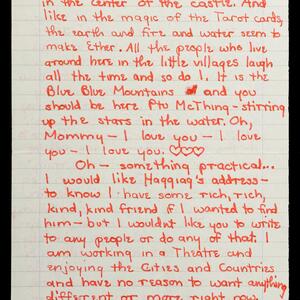 in the center of the castle. And
like in the magic of the Tarot cards,
the earth and fire and water seem to
make Ether. All the people who live
around here in the little villages laugh
all the time and so do I. It is the
Blue Blue Mountains and you
should be here Ptu McThing - stirring
up the stars in the water. Oh,
Mommy - I love you - I love
you - I love you. ♡♡♡
Oh - something practical...
I would like Haqqiaq's address -
to know I have some rich, rich,
kind, kind friend if I wanted to find
him - but I wouldn't like you to write
to any people or do any of that. I
am working in a Theatre and
enjoying the Cities and Countries
and have no reason to want anything
different or more right now.